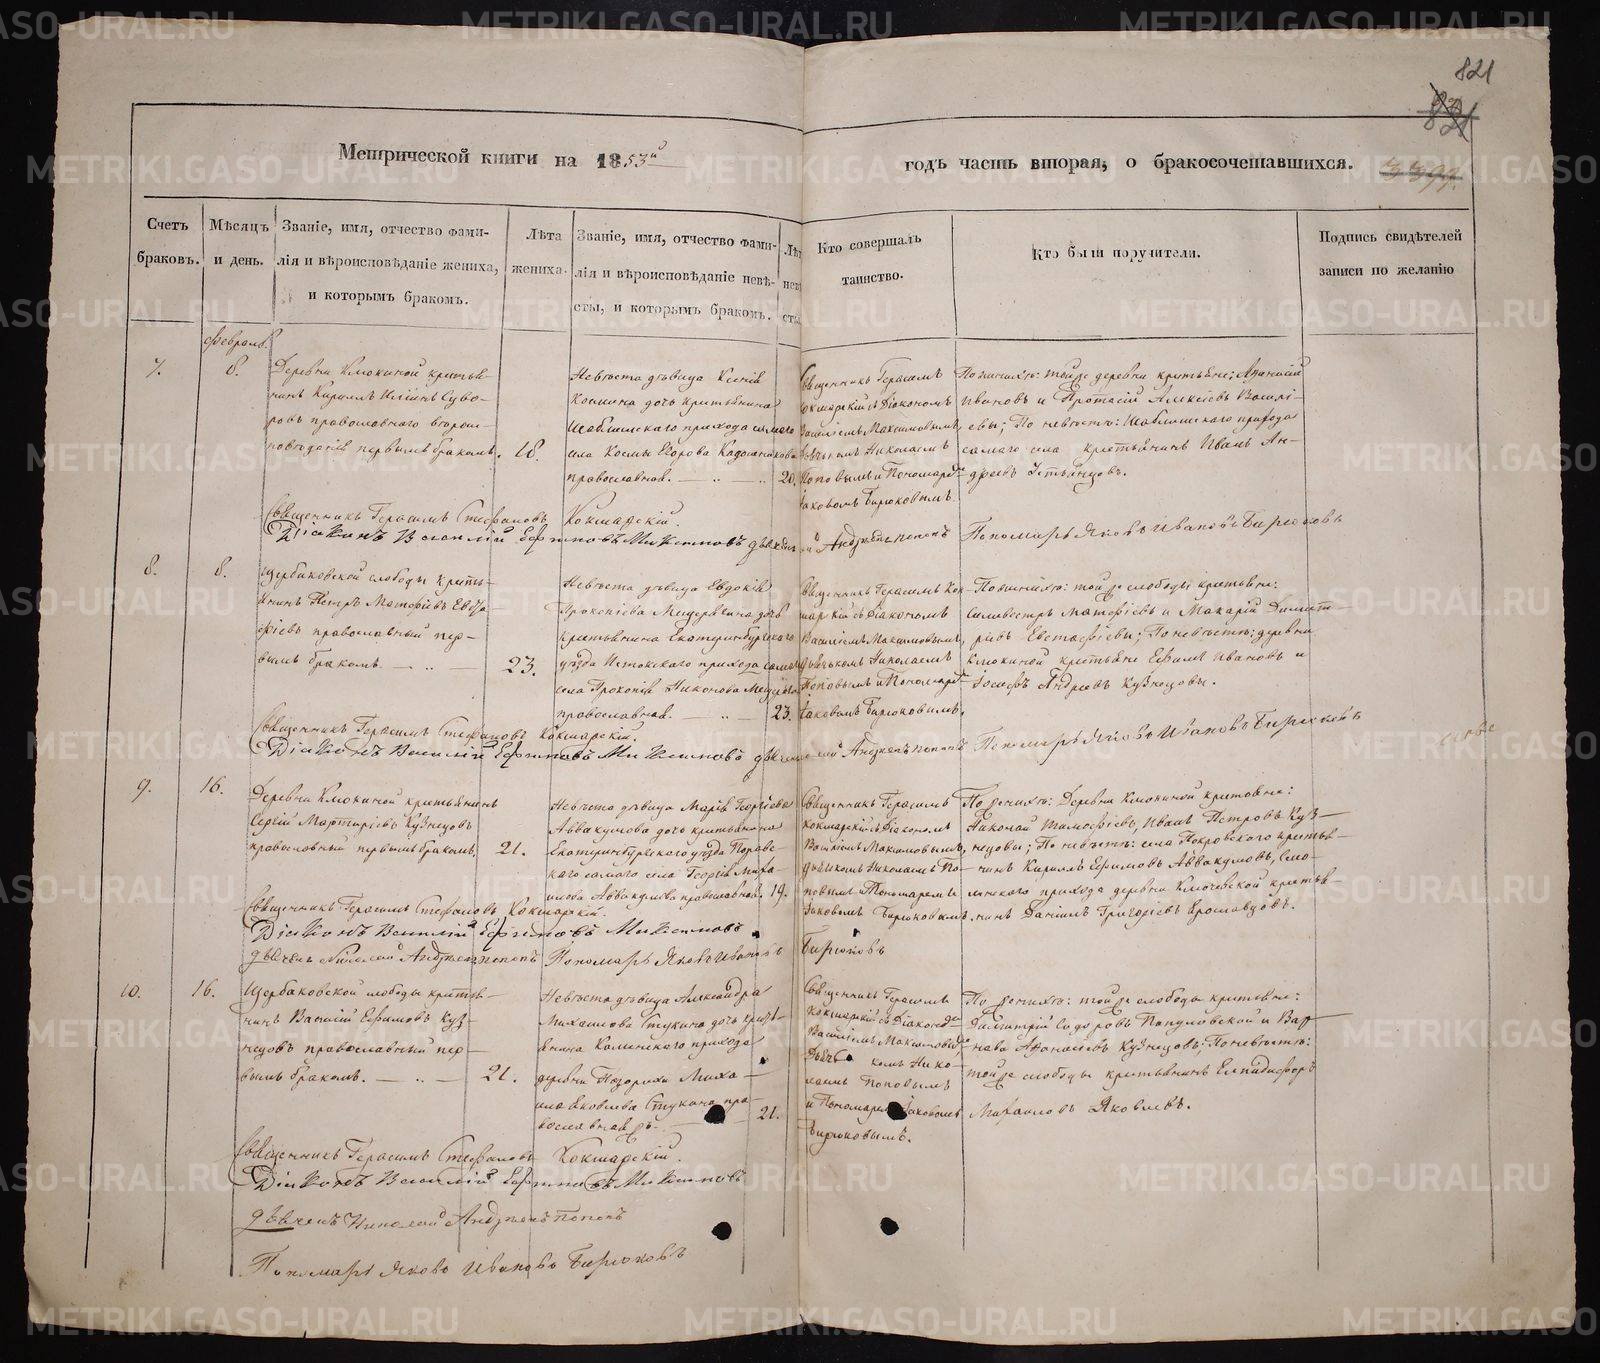 821
Метрической книги на 1853й годъ часть вторая, о бракосочетавшихся.
Счетъ браковъ.
Мѣсяцъ и день.
Званіе, имя, отчество фами-
лія и вѣроисповѣданіе жениха,
и которымъ бракомъ.
Лѣта
жениха.
Званіе, имя, отчество фами-
лія и вѣроисповѣданіе невѣ-
сты, и которымъ бракомъ.
Кто совершалъ
таинство.
Кто были поручители.
Подпись свидѣтелей
записи по желанію
февраль.
7.
8.
Деревни Клюкиной крестья-
нинъ Кириллъ Ильинъ Суво-
ровъ православнаго вѣроис-
повѣданія первымъ бракомъ.
18.
Невѣста дѣвица Ксенія
Космина дочь крестьянина
прихода самого
села Космы Егорова
православная.
20.
Священникъ Герасимъ
Кокшарскій съ Діакономъ
Василіемъ Максимовымъ,
Дьячкомъ Николаемъ
Поповымъ и Пономаремъ
Іаковомъ Бирюковымъ.
По женихѣ: той же деревни крестьяне: Афанасій
Ивановъ и Протасій Алексѣевъ Василь-
евы; По невѣстѣ: прихода
самаго села крестьянинъ Иванъ Ан-
дреевъ Устьянцовъ.
Священникъ Герасимъ Стефановъ Кокшарскій.
Діаконъ Василій Максимовъ
Пономарь Яковъ Ивановъ Бирюковъ
8.
8.
Щербаковской слободы кресть-
янинъ Петръ Матѳіевъ Евста-
фіевъ православный пер-
вымъ бракомъ.
23.
Невѣста дѣвица Евдокія
Прокопіева Мещерягина дочь
крестьянина Екатеринбургскаго
уѣзда Истокскаго прихода самого
села Прокопія Никонова
православная.
23.
Священникъ Герасимъ Кок-
шарскій съ Діакономъ
Василіемъ Максимовымъ,
Дьячькомъ Николаемъ
Поповымъ и Пономаремъ
Іаковомъ Бирюковымъ.
По женихѣ: той же слободы крестьяне:
Селивестръ Матѳіевъ и Макарій Димит-
ріевъ Евстафіевы; По невѣстѣ: деревни
Клюкиной крестьяне Ефимъ Ивановъ и
Іосифъ Андреевъ Кузнецовы.
Священникъ Герасимъ Стефановъ Кокшарскій.
Діаконъ Василій Максимовъ
Пономарь Яковъ Ивановъ Бирюковъ
9.
16.
Деревни Клюкиной крестьянинъ
Сергій Мартиріевъ Кузнецовъ
православный первымъ бракомъ.
21.
Невѣста дѣвица Марія Георгіева
Аввакумова дочь крестьянина
Екатеринбургскаго уѣзда
самого села Георгія Миха-
илова Аввакумова православная.
19.
Священникъ Герасимъ
Кокшарскій съ Діакономъ
Василіемъ Максимовымъ,
дьячькомъ Николаемъ По-
повымъ и Пономаремъ
Іаковомъ Бирюковымъ.
По женихѣ: Деревни Клюкиной крестьяне:
Николай Тимофіевъ, Иванъ Петровъ Куз-
нецовы; По невѣстѣ: села Покровскаго крестья-
нинъ Кириллъ Ефимовъ Аввакумовъ,
прихода деревни Ключевской крестья-
нинъ Даніилъ Григоріевъ
Священникъ Герасимъ Стефановъ Кокшарскій.
Діаконъ Василій Максимовъ
Пономарь Яковъ Ивановъ Бирюковъ
10.
16.
Щербаковской слободы крестья-
нинъ Василій Ефимовъ Куз-
нецовъ православный пер-
вымъ бракомъ.
21.
Невѣста дѣвица Александра
Михаилова Стукина дочь кресть-
янина Каменскаго прихода
деревни Миха-
ила Яковлева Стукина пра-
вославная
21.
Священникъ Герасимъ
Кокшарскій съ Діакономъ
Василіемъ Максимовымъ
Дьячькомъ Нико-
лаемъ Поповымъ
и Пономаремъ Іаковомъ
Бирюковымъ.
По женихѣ: той же слободы крестьяне:
Димитрій и Вар-
нава Афонасіевъ Кузнецовъ; По невѣстѣ:
той же слободы крестьянинъ Елпидифоръ
Михаиловъ Яковлевъ.
Священникъ Герасимъ Стефановъ Кокшарскій.
Діаконъ Василій Максимовъ
дьячекъ Николай Поповъ
Пономарь Яковъ Ивановъ Бирюковъ
METRIKI.GASO-URAL.RU